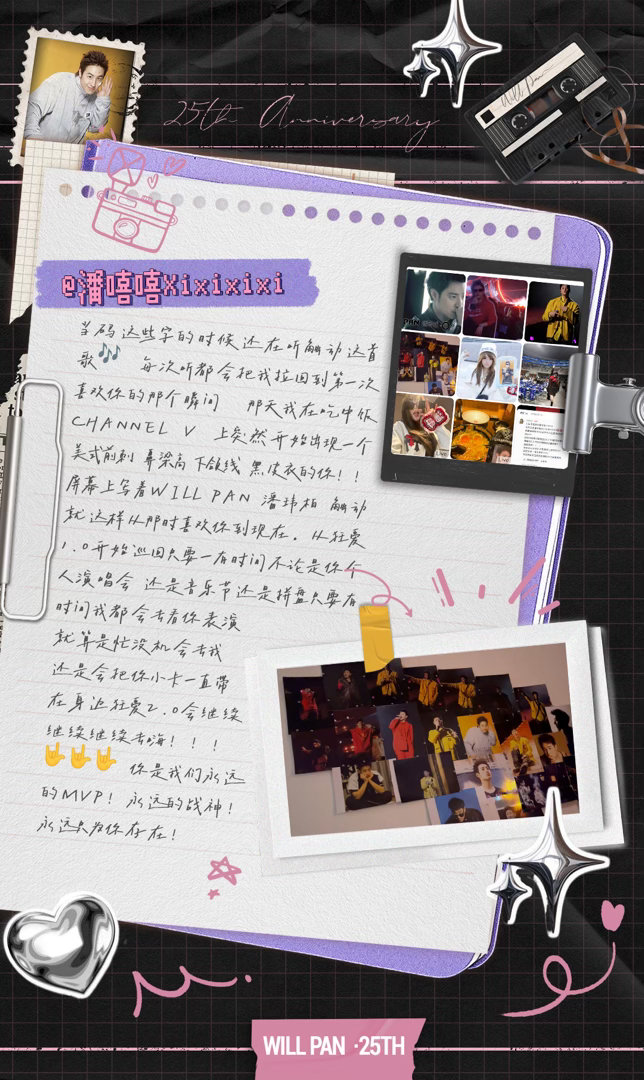 25th Anniversary
Will Pan
@潘嘻嘻Xixixixi
当码这些字的时候还在听触动这首
歌🎶 每次听都会把我拉回到第一次
喜欢你的那个瞬间 那天我在吃中饭
CHANNEL V 上突然开始出现一个
美式前刺 鼻梁高 下颌线 黑皮衣的你!!
屏幕上写着WILL PAN 潘玮柏 触动
就这样从那时喜欢你到现在。从狂爱
1.0开始巡回只要一有时间不论是你个
人演唱会 还是音乐节还是拼盘只要有
时间我都会去看你表演
就算是忙没机会去我
还是会把你小卡一直带
在身边狂爱2.0会继续
继续继续去嗨!!!
🤟🤟🤟 你是我们永远
的MVP! 永远的战神!
永远只为你存在!
WILL PAN ·25TH